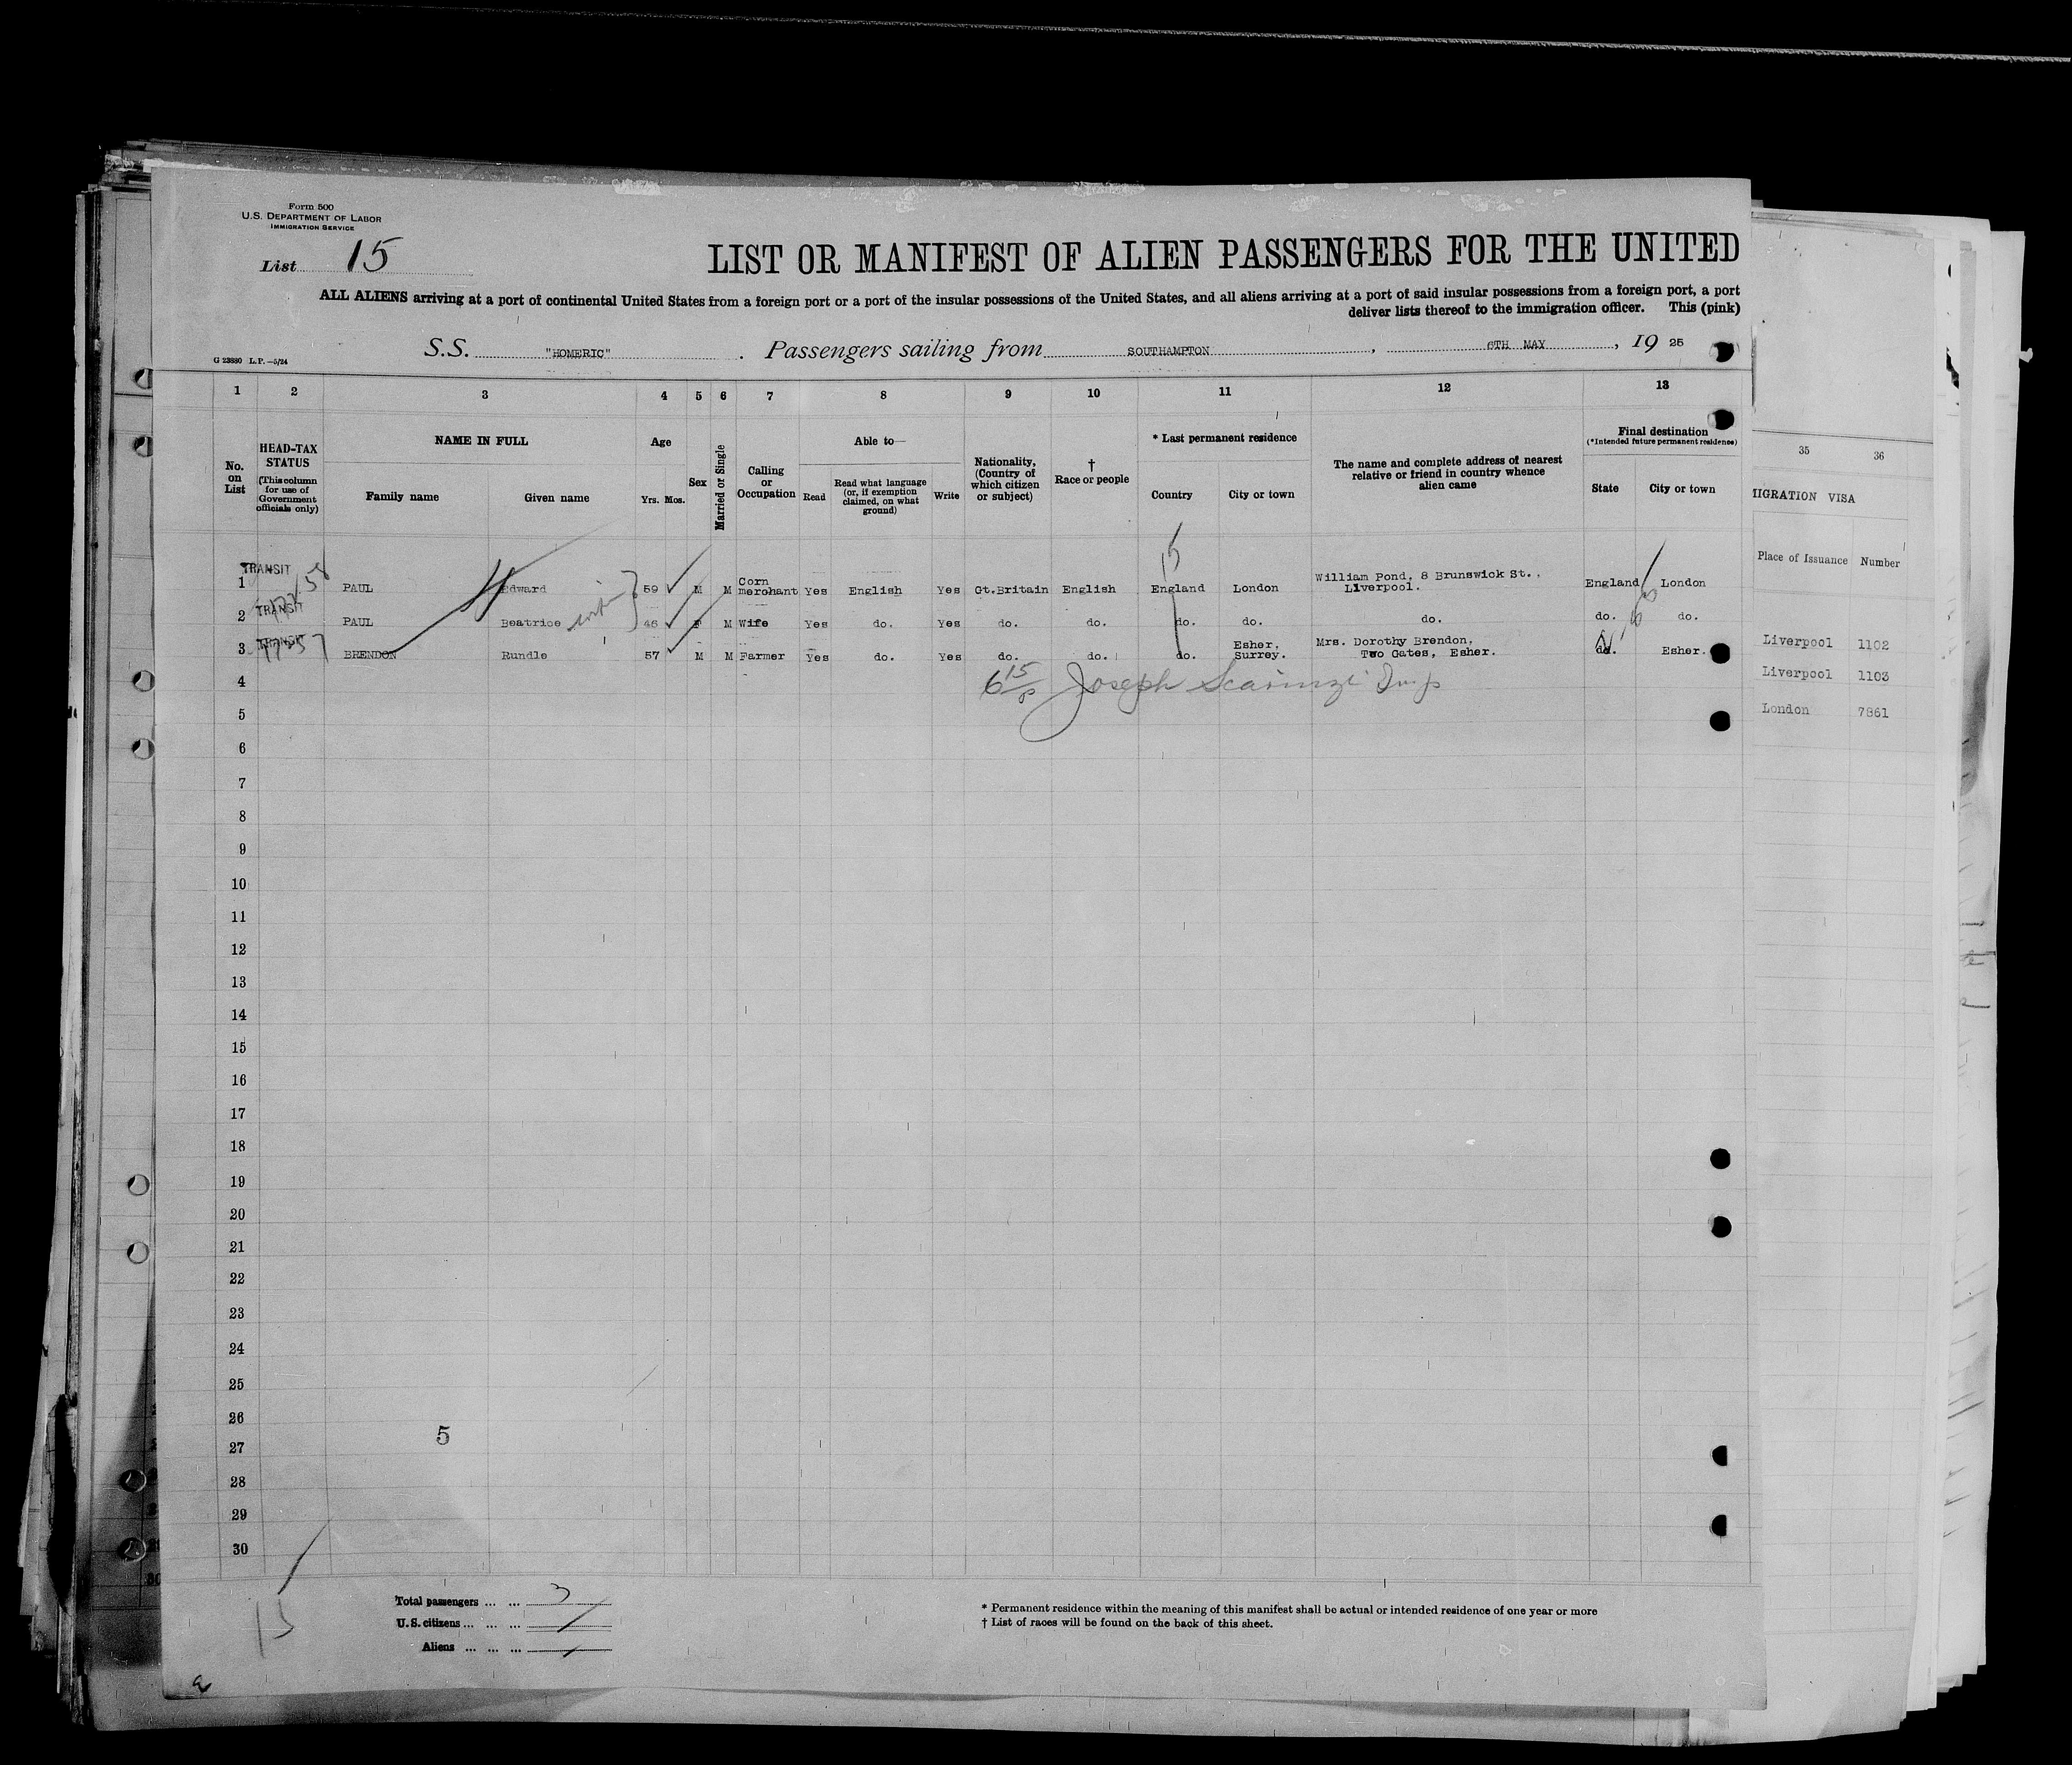 Form 500
U.S. DEPARTMENT OF LABOR
IMMIGRATION SERVICE
List 15
LIST OR MANIFEST OF ALIEN PASSENGERS FOR THE UNITED
ALL ALIENS arriving at a port of continental United States from a foreign port or a port of the insular possessions of the United States, and all aliens arriving at a port of said insular possessions from a foreign port, a port
deliver lists thereof to the immigration officer. This (pink)
G 23880 L.P.—5/24
S.S. "HOMERIC" . Passengers sailing from SOUTHAMPTON , 6TH MAY , 19 25
1 2 3 4 5 6 7 8 9 10 11 12 13
No. on List
HEAD-TAX STATUS
(This column for use of Government officials only)
NAME IN FULL
Family name Given name
Age
Yrs. Mos.
Sex
Married or Single
Calling or Occupation
Able to—
Read
Read what language (or, if exemption claimed, on what ground)
Write
Nationality, (Country of which citizen or subject)
† Race or people
* Last permanent residence
Country City or town
The name and complete address of nearest relative or friend in country whence alien came
Final destination
(*Intended future permanent residence)
State City or town
35 36
IIGRATION VISA
Place of Issuance Number
1 TRANSIT PAUL Edward 59 M M Corn merchant Yes English Yes Gt.Britain English England London William Pond, 8 Brunswick St., Liverpool. England London
2 TRANSIT PAUL Beatrice wife 46 F M Wife Yes do. Yes do. do. do. do. do. do. do.
3 TRANSIT BRENDON Rundle 57 M M Farmer Yes do. Yes do. do. do. Esher, Surrey. Mrs. Dorothy Brendon, Two Gates, Esher. do. Esher.
Liverpool 1102
Liverpool 1103
London 7861
15
4 Joseph
5
6
7
8
9
10
11
12
13
14
15
16
17
18
19
20
21
22
23
24
25
26
5
27
28
29
30
15
Total passengers ... ... 3
U.S. citizens ... ... ...
Aliens ... ... ...
* Permanent residence within the meaning of this manifest shall be actual or intended residence of one year or more
† List of races will be found on the back of this sheet.